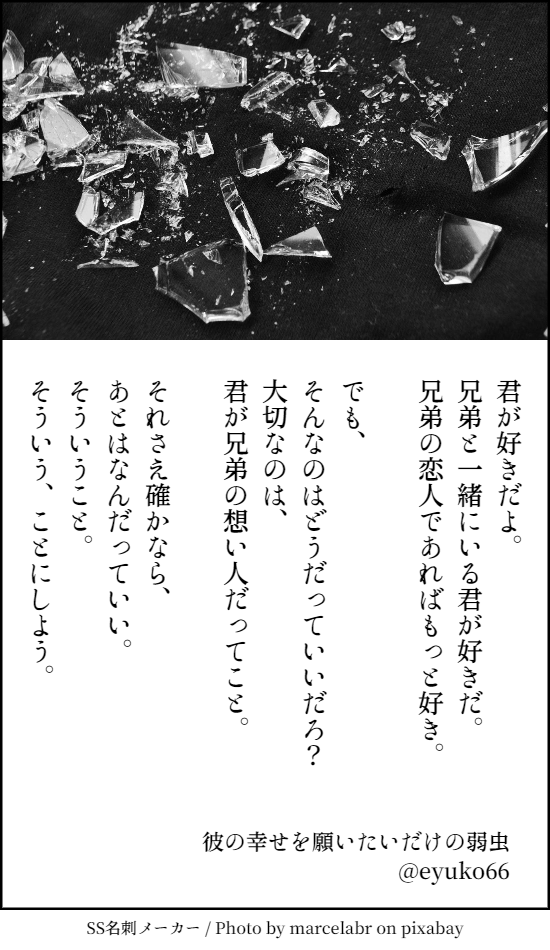 君が好きだよ。
兄弟と一緒にいる君が好きだ。
兄弟の恋人であればもっと好き。
でも、
そんなのはどうだっていいだろ？
大切なのは、
君が兄弟の想い人だってこと。
それさえ確かなら、
あとはなんだっていい。
そういうこと。
そういう、ことにしよう。
彼の幸せを願いたいだけの弱虫
@eyuko66
SS名刺メーカー / Photo by marcelabr on pixabay